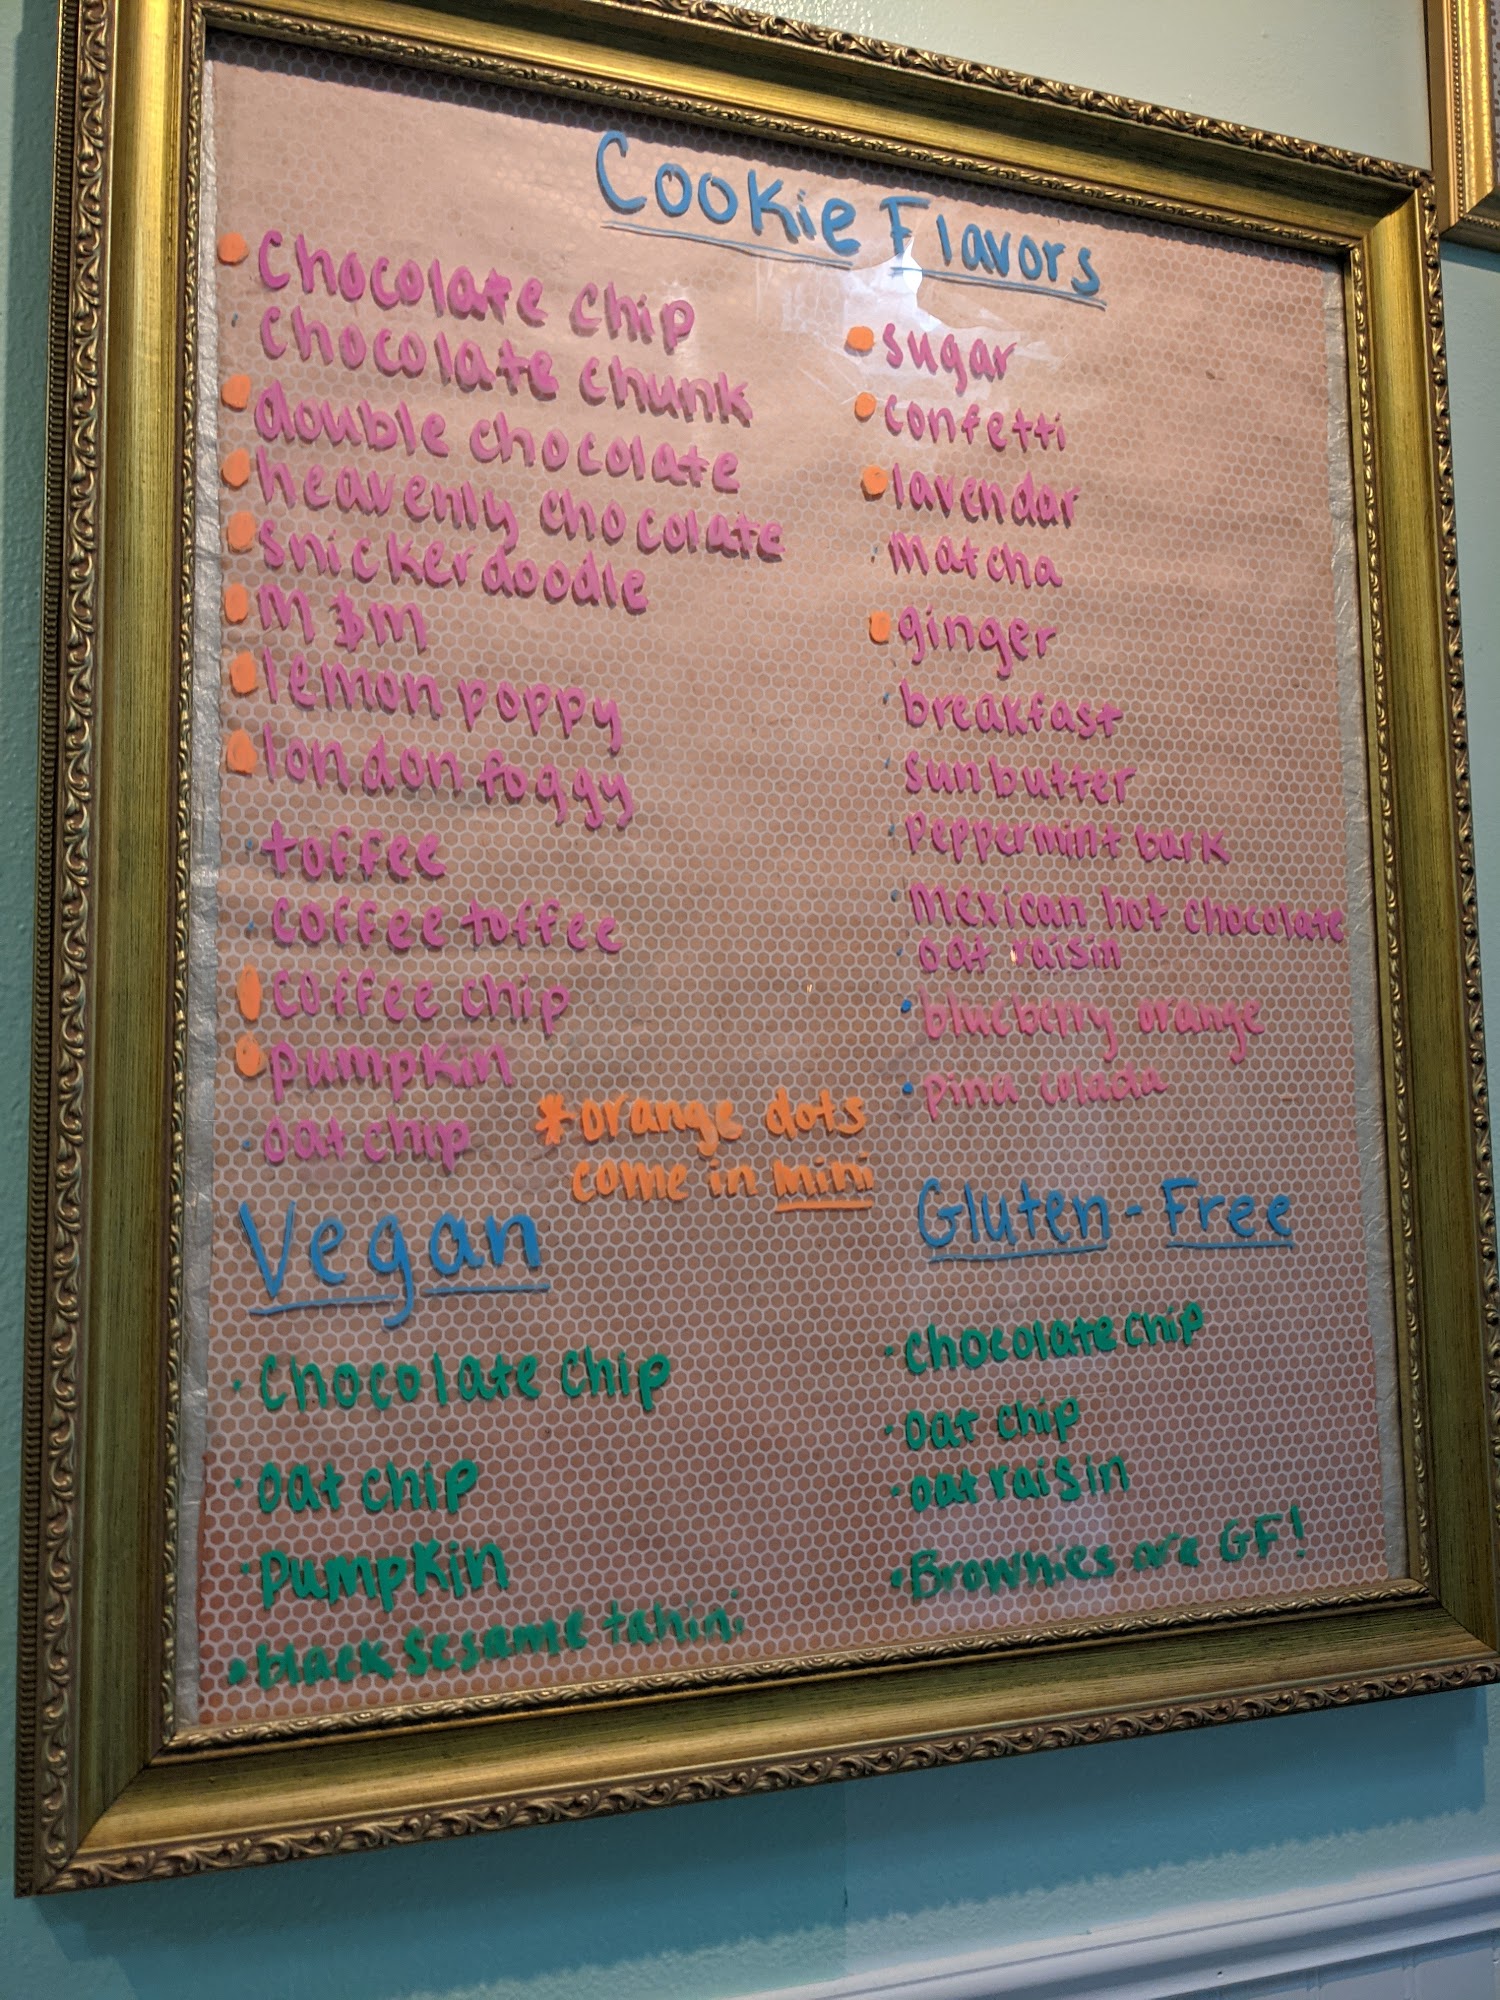 Cookie Flavors
Chocolate chip
Chocolate chunk
double chocolate
heavenly chocolate
snickerdoodle
M&M
lemon poppy
london foggy
toffee
coffee toffee
coffee chip
pumpkin
oat chip
sugar
confetti
lavendar
matcha
ginger
breakfast
sunbutter
peppermint bark
mexican hot chocolate
oat raisin
blueberry orange
pina colada
*orange dots
come in mini
Vegan
Chocolate chip
oat chip
Pumpkin
black sesame tahini
Gluten-Free
Chocolate chip
oat chip
oat raisin
Brownies are GF!